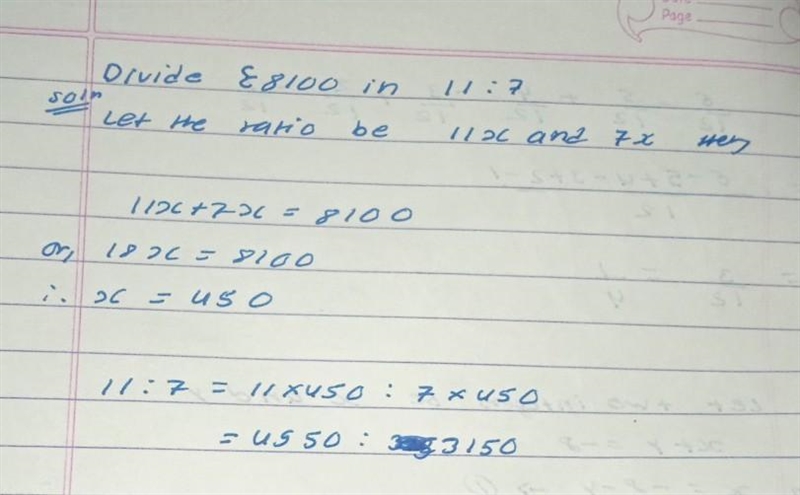 Page
Divide £8100 in 11:7
soln
Let the ratio be 11x and 7x then
11x+7x = 8100
or, 18x = 8100
∴ x = 450
11:7 = 11×450 : 7×450
= 4550 : 3150